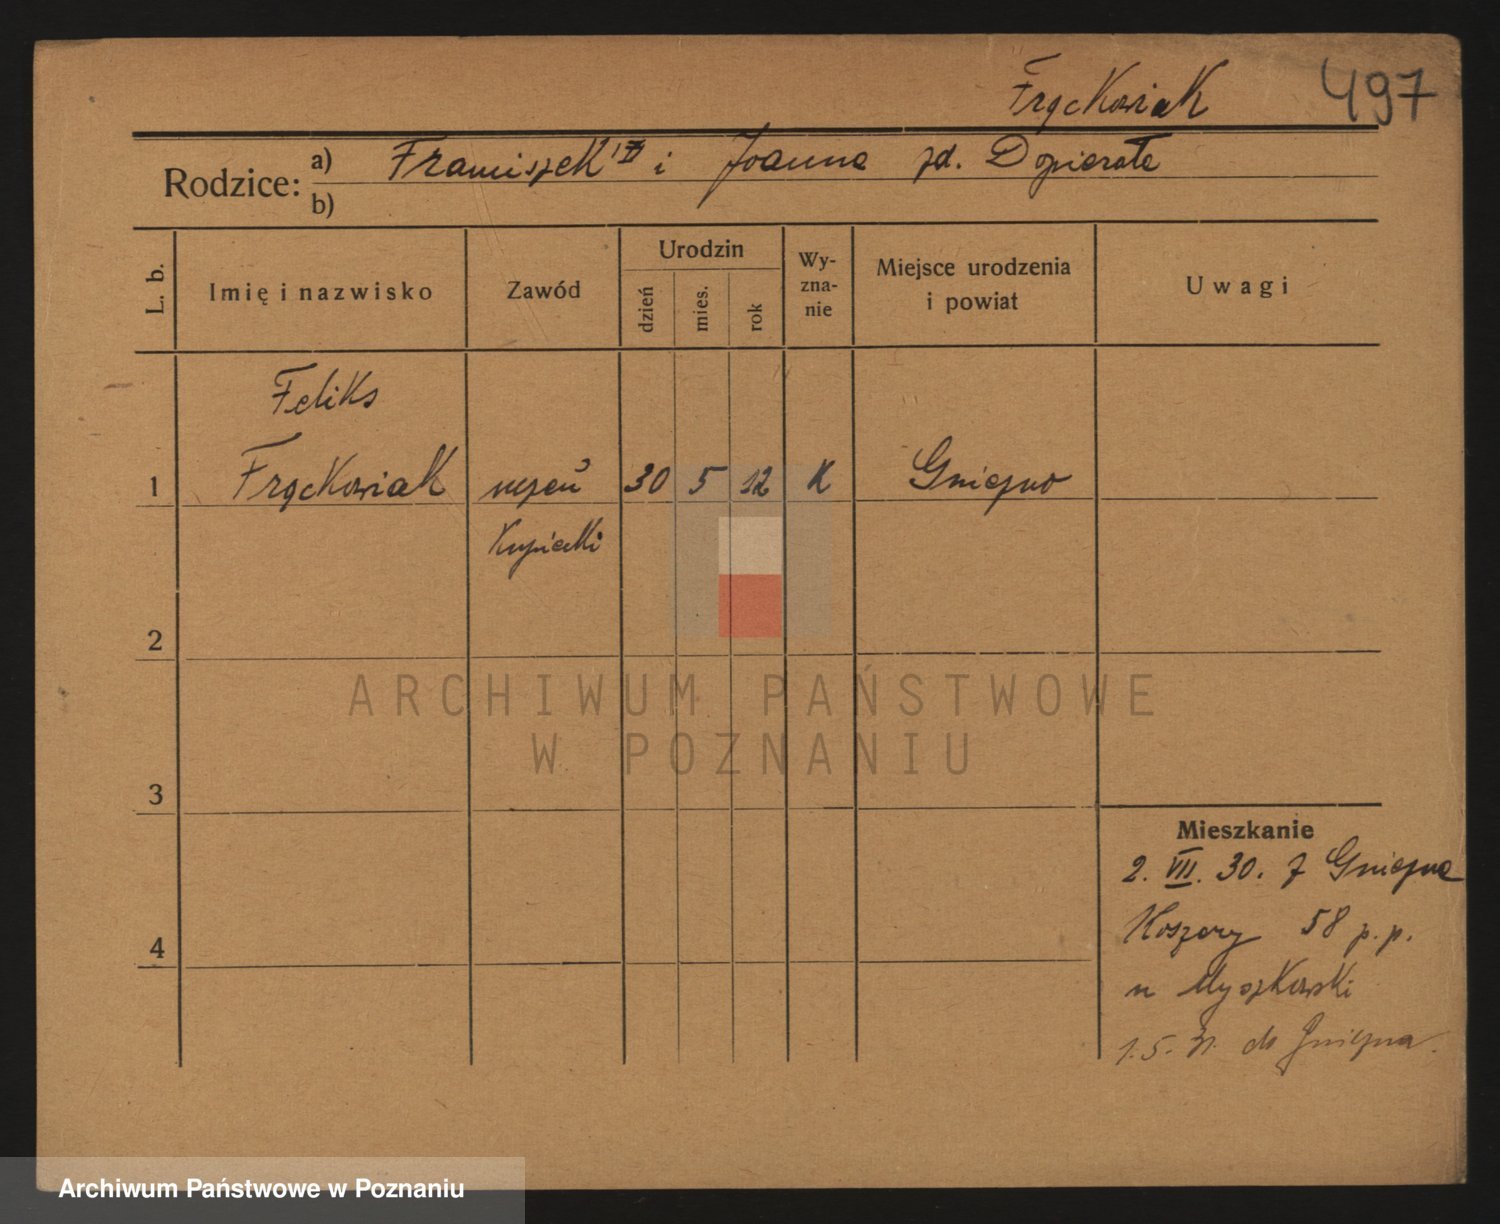 Frąckowiak 497
Rodzice: a) Franciszek i Joanna zd. Dopierała
b)
L. b. Imię i nazwisko Zawód Urodzin dzień mies. rok Wy-zna-nie Miejsce urodzenia i powiat Uwagi
Feliks
1 Frąckowiak uczeń 30 5 12 K Gniezno
kupiecki
2
ARCHIWUM PAŃSTWOWE
W POZNANIU
3
Mieszkanie
2. VII. 30. z Gniezna
Koszary 58 p.p.
u Myszkowski
4
1.5.31. do Gniezna.
Archiwum Państwowe w Poznaniu